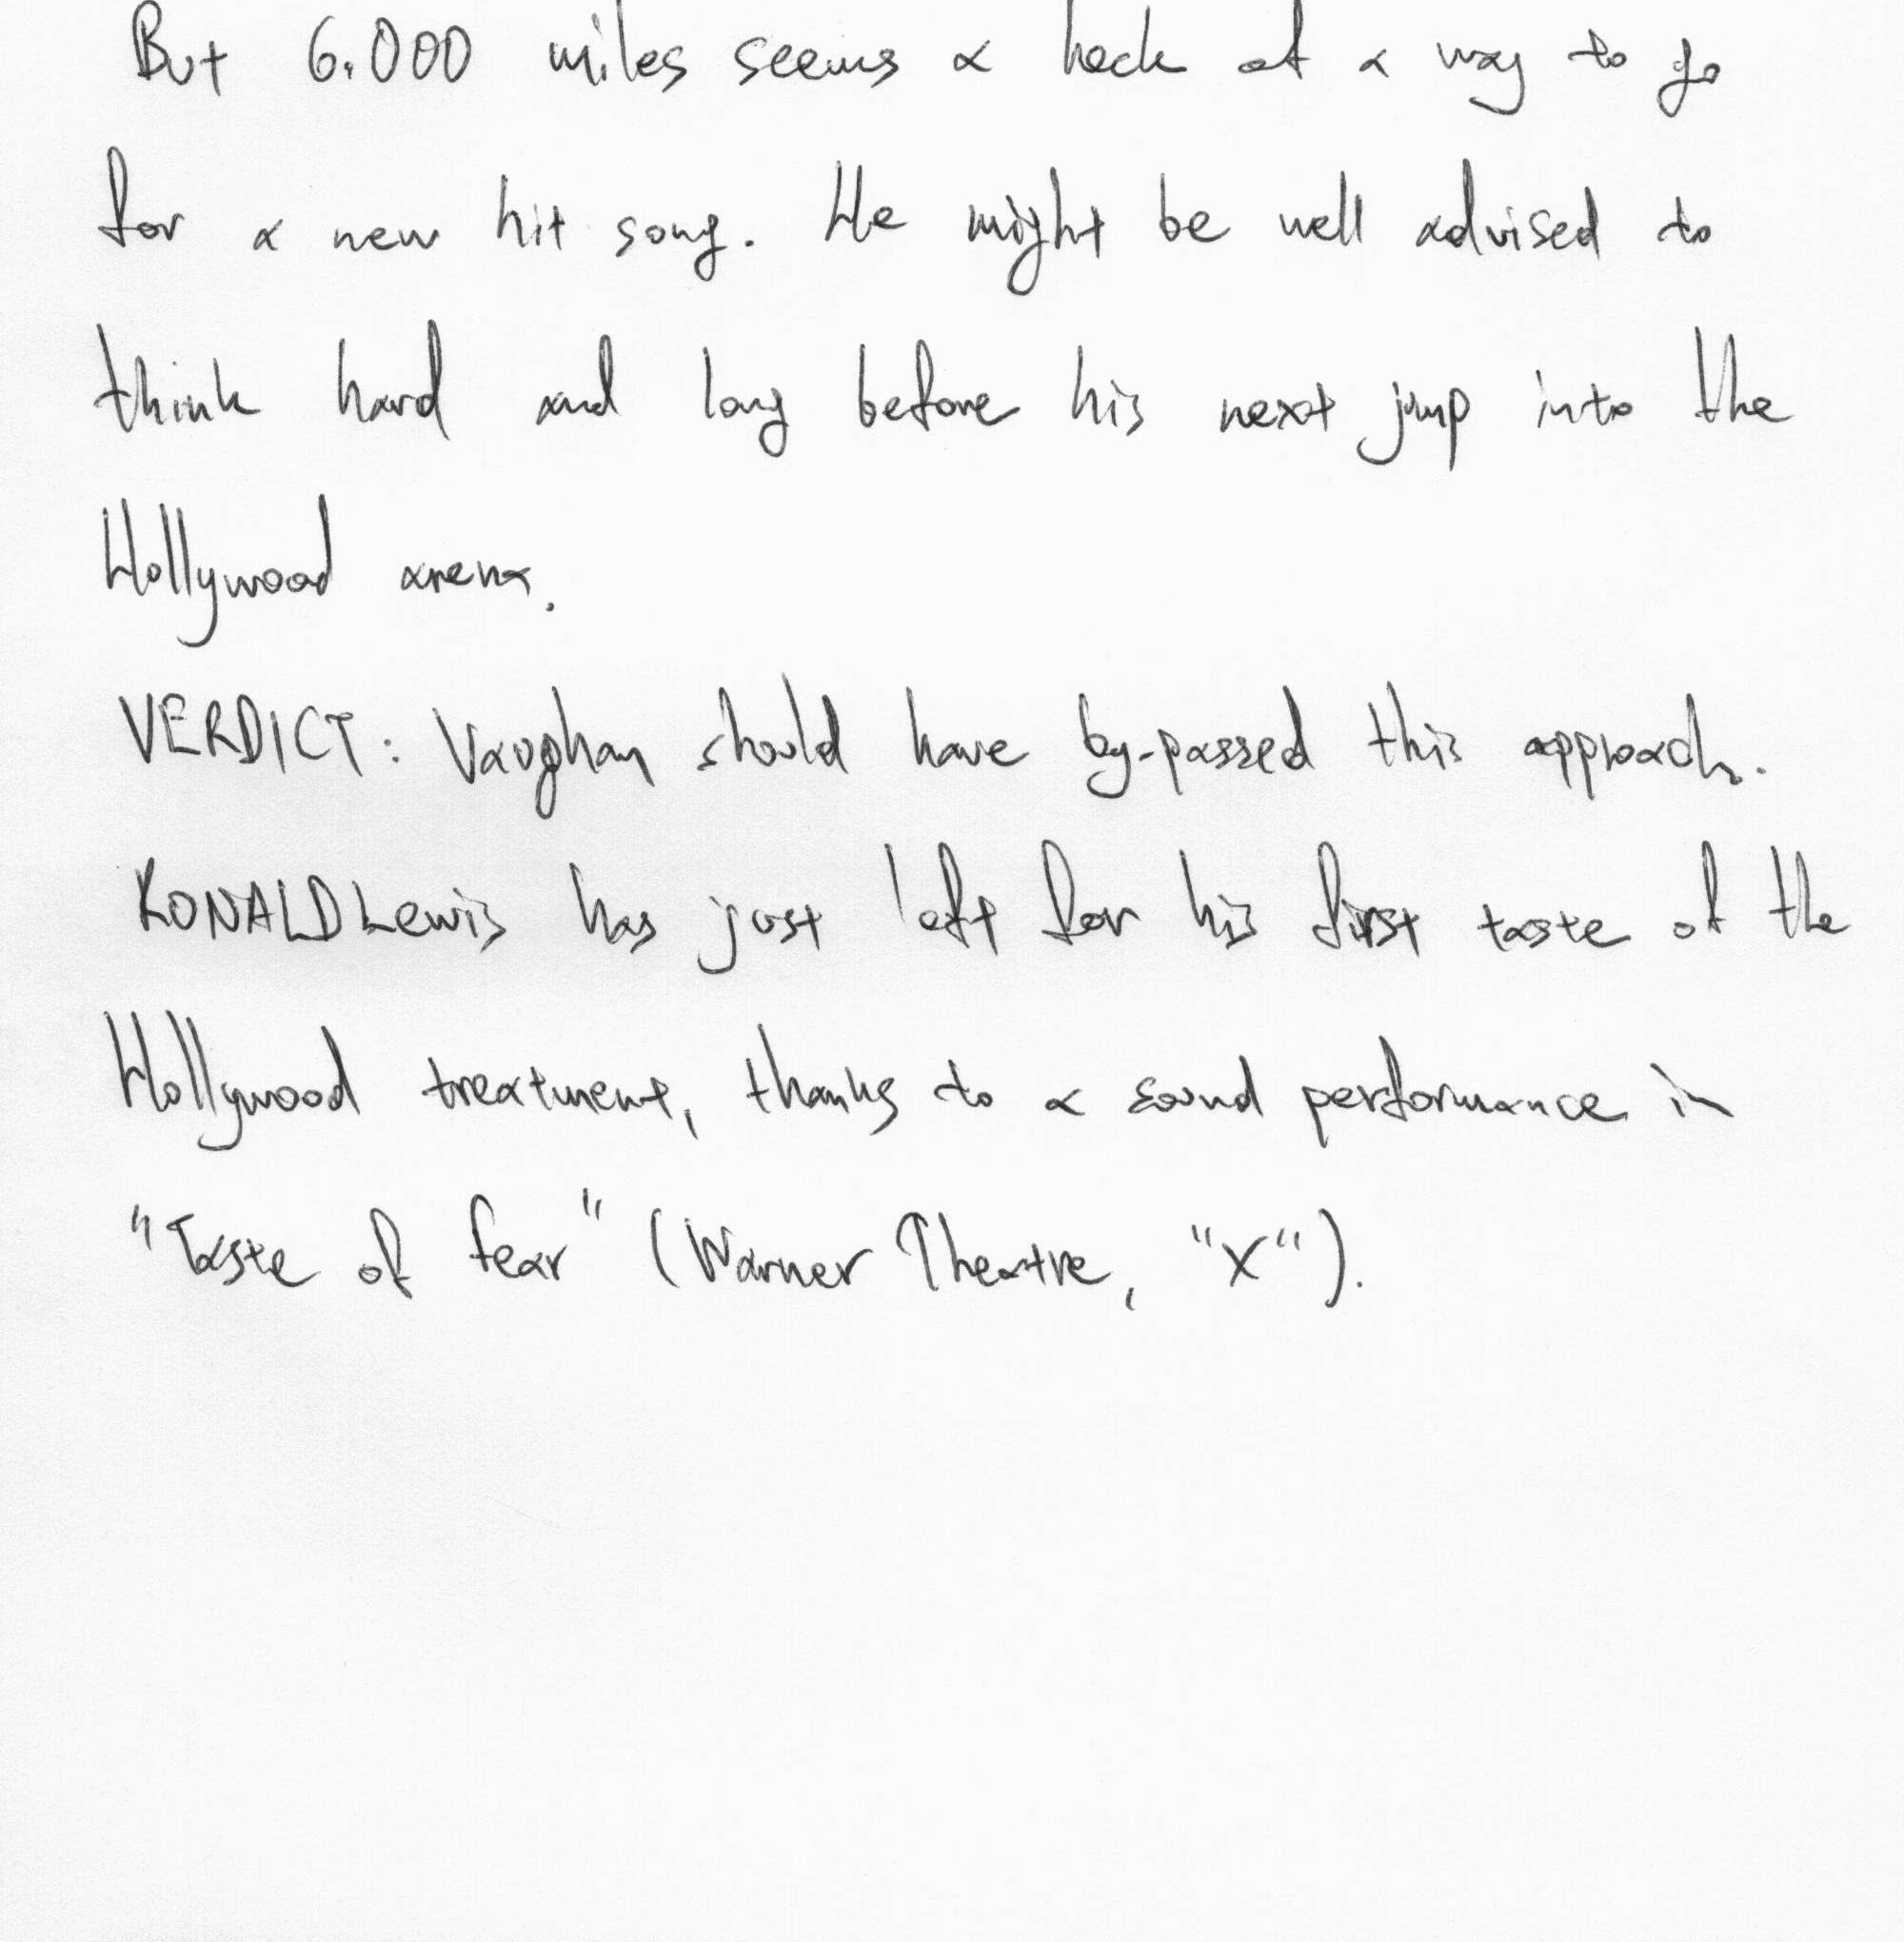 But 6.000 miles seems a heck of a way to go
for a new hit song. He might be well advised to
think hard and long before his next jump into the
Hollywood arena.
VERDICT: Vaughan should have by-passed this approach.
RONALD Lewis has just left for his first taste of the
Hollywood treatment, thanks to a sound performance in
"Taste of fear" (Warner Theatre, "X").